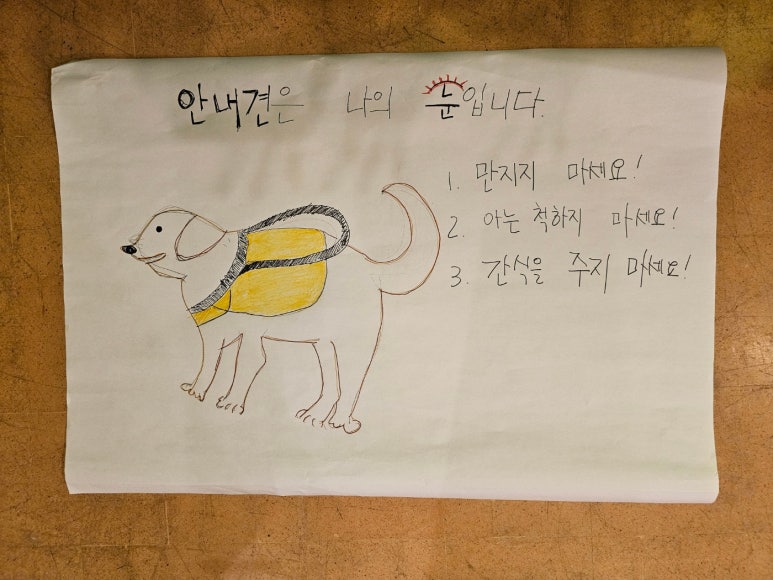 안내견은 나의 눈입니다.
1. 만지지 마세요!
2. 아는 척하지 마세요!
3. 간식을 주지 마세요!